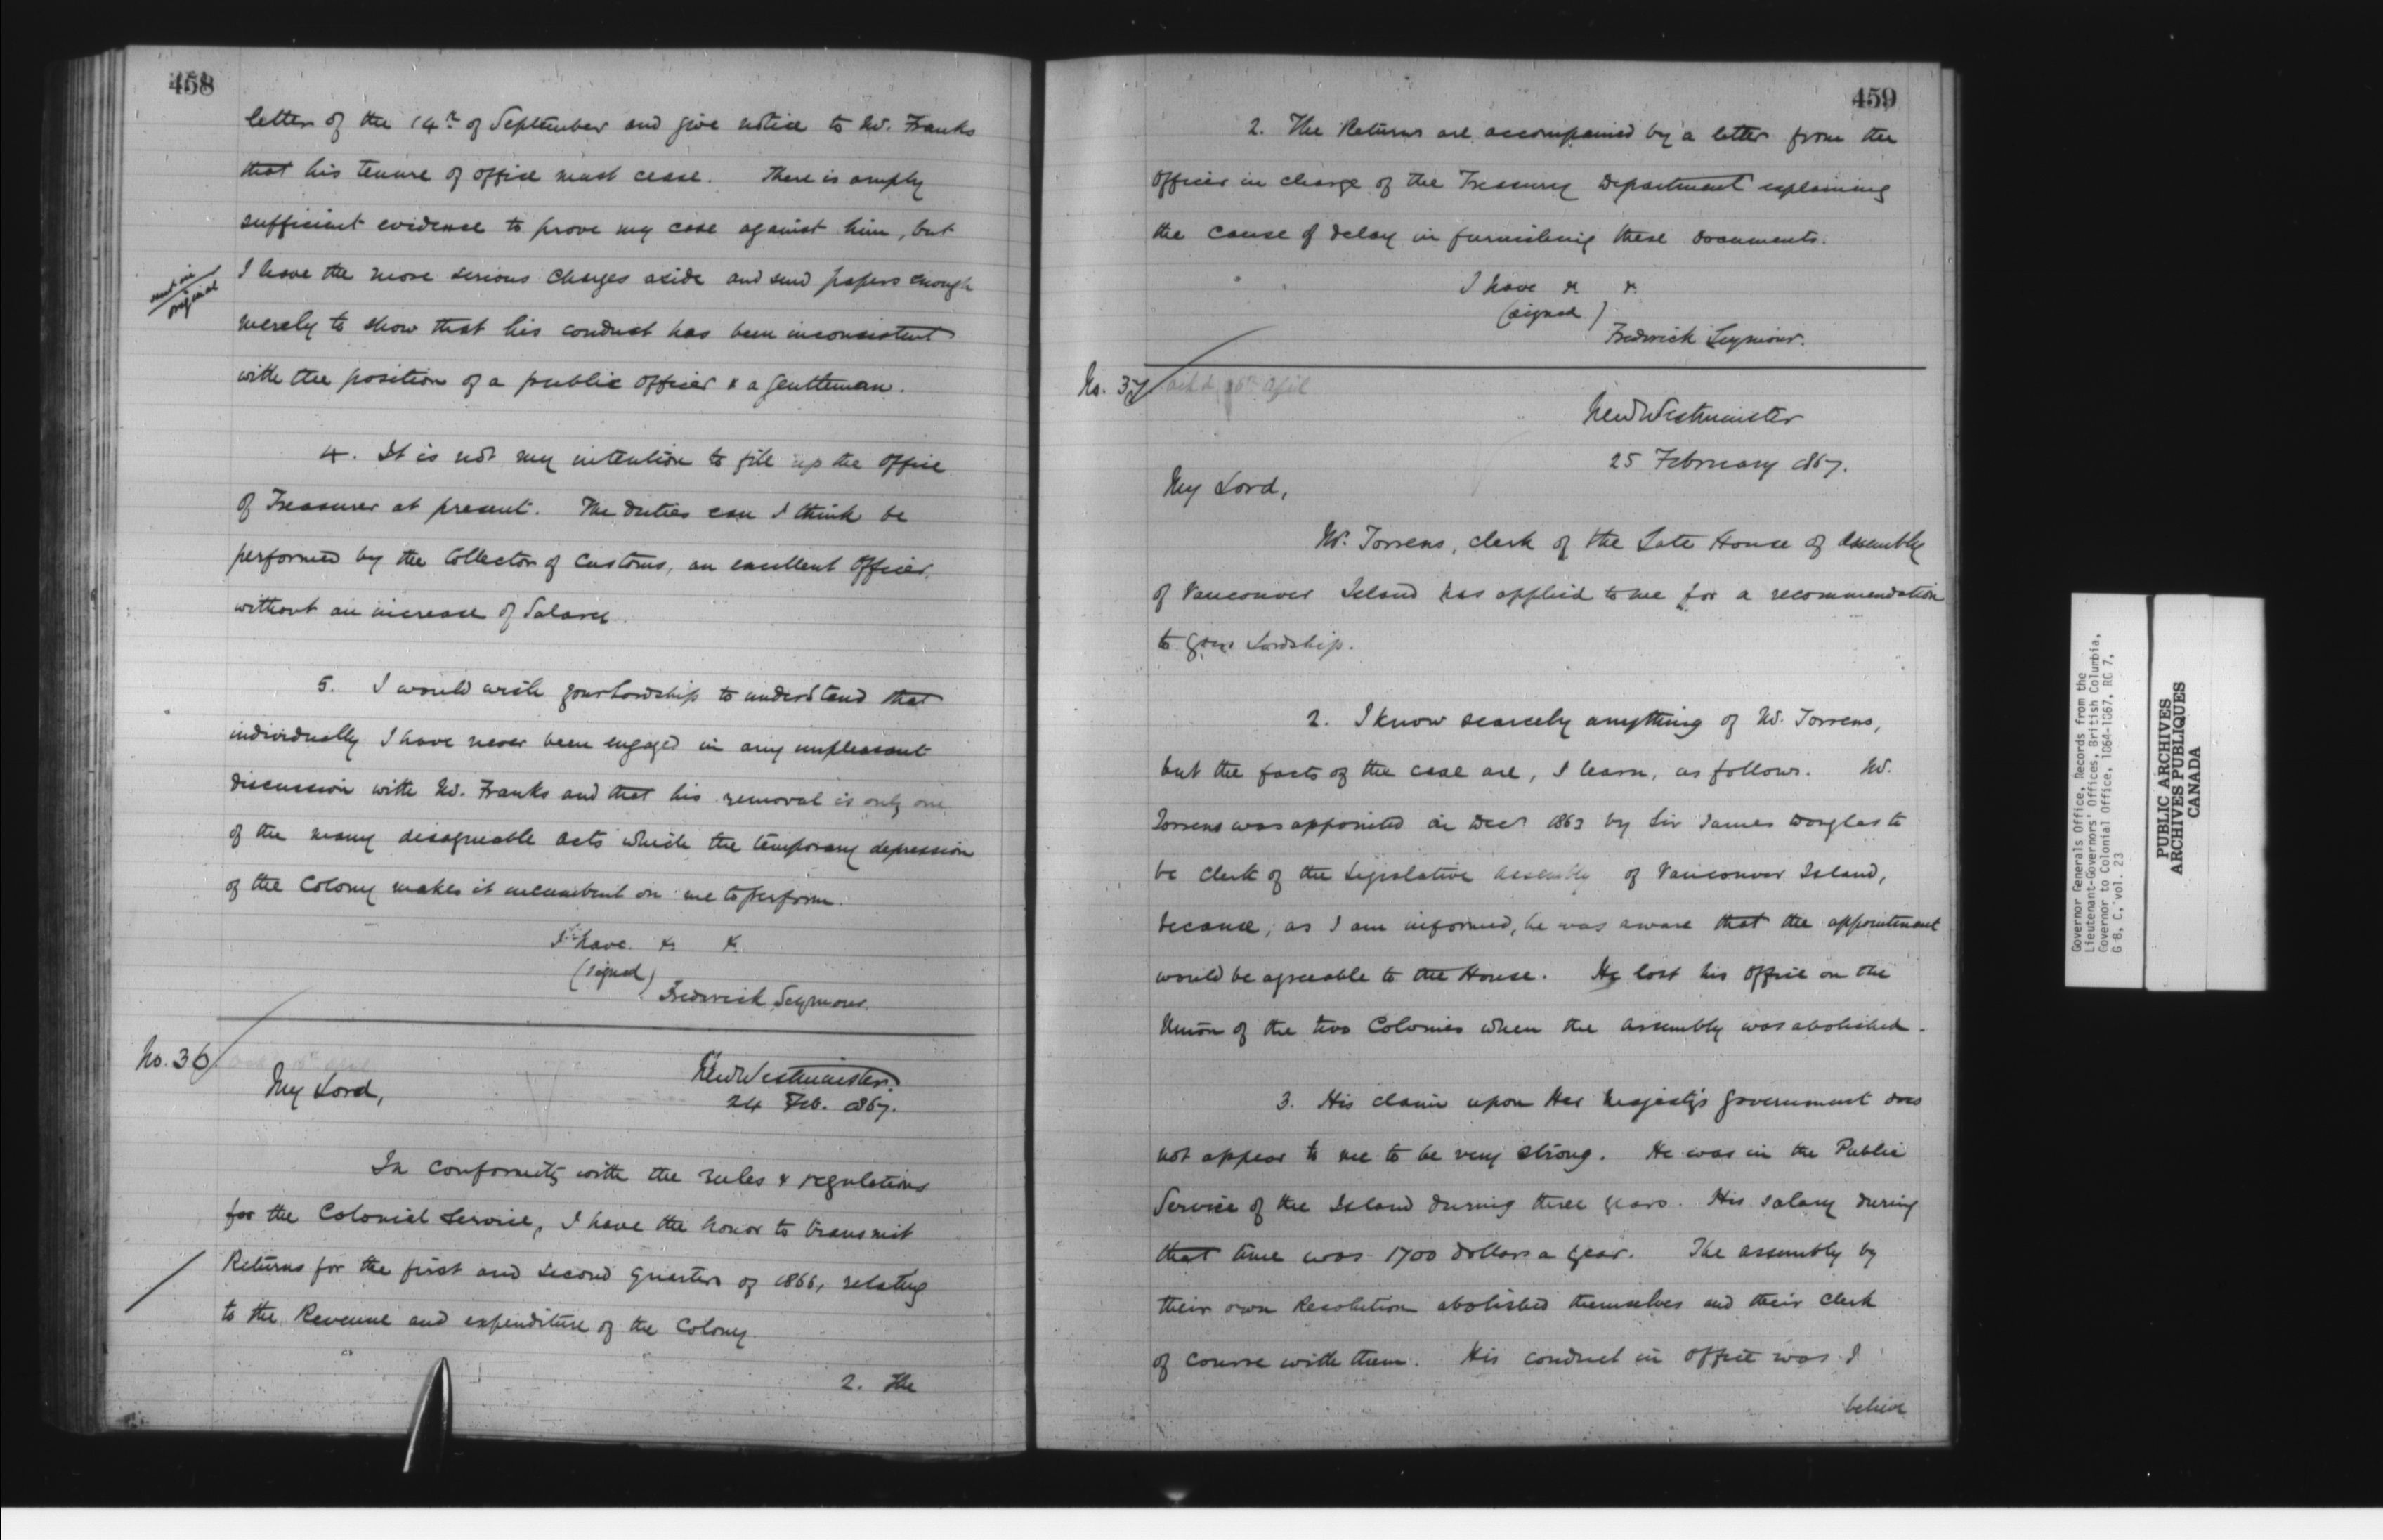 458
letter of the 14th of September and give notice to Mr. Franks
that his tenure of office must cease. There is amply
sufficient evidence to prove my case against him, but
I leave the more serious charges aside and send papers enough
sent in
original
merely to show that his conduct has been inconsistent
with the position of a public officer & a gentleman.
4. It is not my intention to fill up the office
of Treasurer at present. The duties can I think be
performed by the Collector of Customs, an excellent Officer,
without an increase of Salary.
5. I would wish your Lordship to understand that
individually I have never been engaged in any unpleasant
discussion with Mr. Franks and that his removal is only one
of the many disagreeable acts which the temporary depression
of the Colony makes it incumbent on me to perform.
I have &c &c
(signed)
Frederick Seymour.
No. 36
New Westminster.
My Lord,
24 Feb. 1867.
In conformity with the rules & regulations
for the Colonial Service, I have the honor to transmit
Returns for the first and second Quarters of 1866, relating
to the Revenue and expenditure of the Colony.
2. The
459
2. The Returns are accompanied by a letter from the
Officer in charge of the Treasury Department explaining
the cause of delay in furnishing these documents.
I have &c &c
(signed)
Frederick Seymour.
No. 37
New Westminster
25 February 1867.
My Lord,
Mr. Torrens, clerk of the Late House of Assembly
of Vancouver Island has applied to me for a recommendation
to your Lordship.
2. I know scarcely anything of Mr. Torrens,
but the facts of the case are, I learn, as follows. Mr.
Torrens was appointed in Decr 1863 by Sir James Douglas to
be Clerk of the Legislative Assembly of Vancouver Island,
because, as I am informed, he was aware that the appointment
would be agreeable to the House. He lost his office on the
Union of the two Colonies when the Assembly was abolished.
3. His claim upon Her Majesty's Government does
not appear to me to be very strong. He was in the Public
Service of the Island during three years. His salary during
that time was 1700 dollars a year. The Assembly by
their own Resolution abolished themselves and their Clerk
of course with them. His conduct in office was I
believe
Governor Generals Office, Records from the
Lieutenant-Governors' Offices, British Columbia,
Governor to Colonial Office, 1864-1867, RG 7,
G 8, C, vol. 23
PUBLIC ARCHIVES
ARCHIVES PUBLIQUES
CANADA